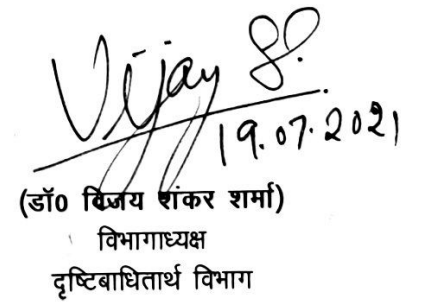 Vijay S.
19.07.2021
(डॉ0 विजय शंकर शर्मा)
विभागाध्यक्ष
दृष्टिबाधितार्थ विभाग